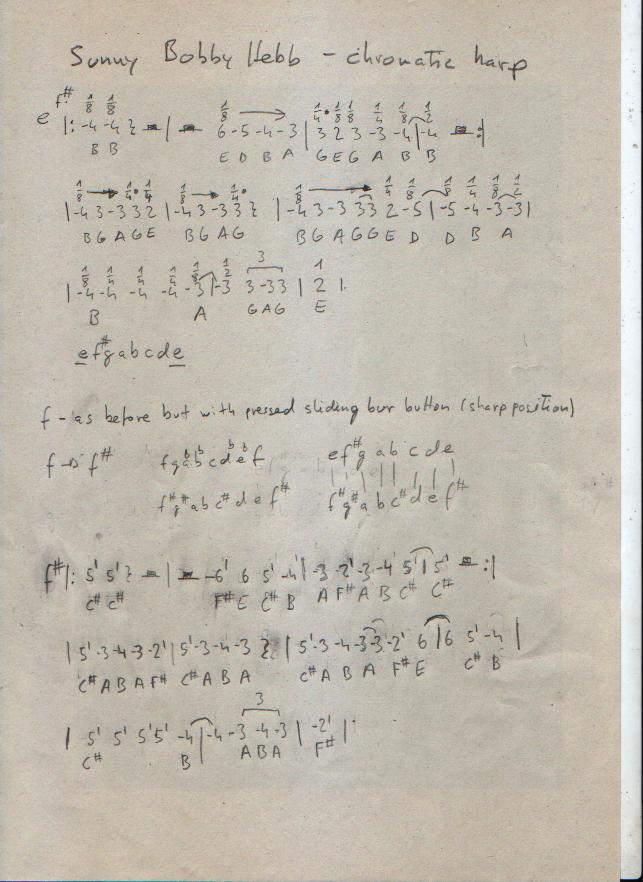 Sunny Bobby Hebb – chromatic harp
f#
1/8 1/8 1/8 → 1/4• 1/8 1/8 1/4 1/8 1/2
e |: -4 -4 } ▬ | ▬ 6 -5 -4 -3 | 3 2 3 -3 -4 | -4 ▬ :|
B B E D B A G E G A B B
1/8 → 1/4• 1/4 1/8 → 1/4• 1/8 → 1/4 1/8 1/8 1/4 1/8 1/2
| -4 3 -3 3 2 | -4 3 -3 3 } | -4 3 -3 3 3 2 -5 | -5 -4 -3 -3 |
B G A G E B G A G B G A G G E D D B A
1/8 1/4 1/4 1/4 1/8 1/2 3 1
| -4 -4 -4 -4 -3 | -3 3 -3 3 | 2 |.
B A G A G E
e f# g a b c d e
f - as before but with pressed sliding bur button (sharp position)
f → f# f g ab bb c db eb f e f# g a b c d e
f# g# a b c# d e f# f# g# a b c# d e f#
f# |: 5' 5' } ▬ | ▬ -6' 6 5' -4 | -3 -2' -3 -4 5' | 5' ▬ :|
C# C# F# E C# B A F# A B C# C#
| 5' -3 -4 -3 -2' | 5' -3 -4 -3 } | 5' -3 -4 -3 -3 -2' 6 | 6 5' -4 |
C# A B A F# C# A B A C# A B A F# E C# B
3
| 5' 5' 5' 5' -4 | -4 -3 -4 -3 | -2' |.
C# B A B A F#